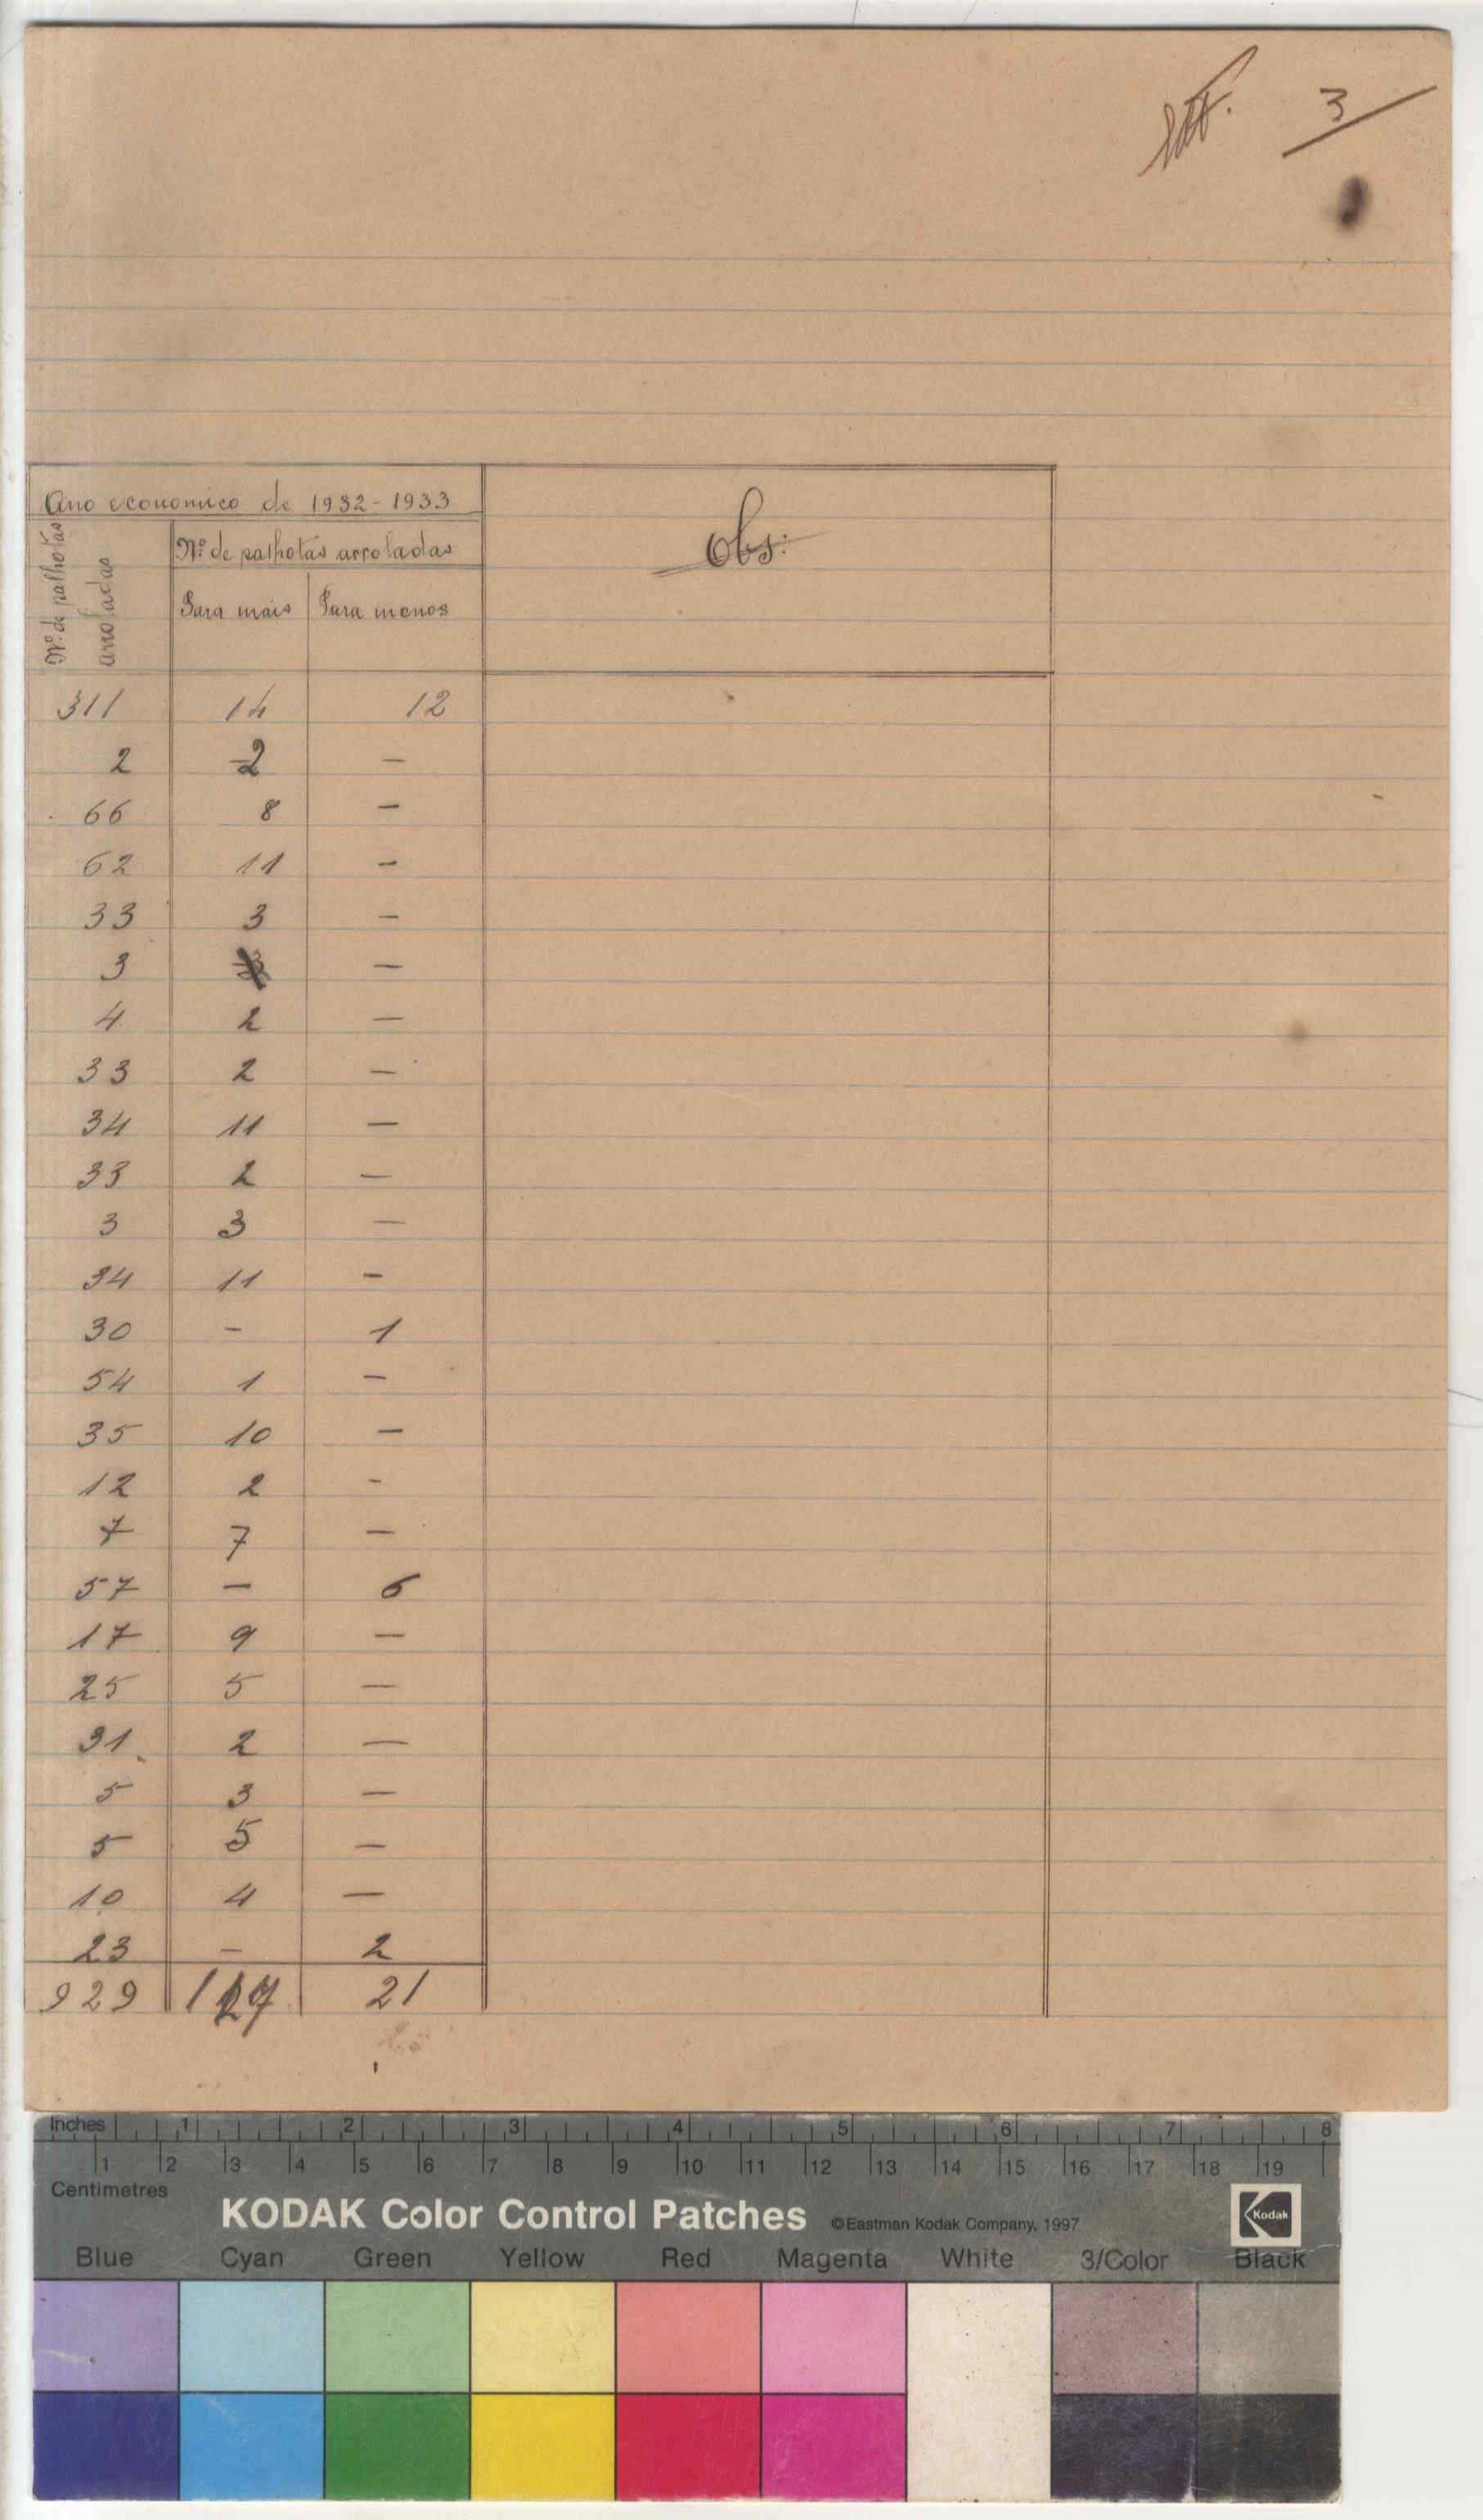 3
Ano economico de 1932-1933
Obs:
Nº. de palhotas arroladas
Nº. de palhotas arroladas
Para mais Para menos
311 14 12
2 2 —
66 8 —
62 11 —
33 3 —
3 —
4 2 —
33 2 —
34 11 —
33 2 —
3 3 —
34 11 —
30 - 1
54 1 —
35 10 —
12 2 -
7 7 —
57 — 6
17 9 —
25 5 —
31 2 —
5 3 —
5 5 —
10 4 —
23 — 2
929 127 21
Inches 1 2 3 4 5 6 7 8
1 2 3 4 5 6 7 8 9 10 11 12 13 14 15 16 17 18 19
Centimetres
KODAK Color Control Patches ©Eastman Kodak Company, 1997 Kodak
Blue Cyan Green Yellow Red Magenta White 3/Color Black